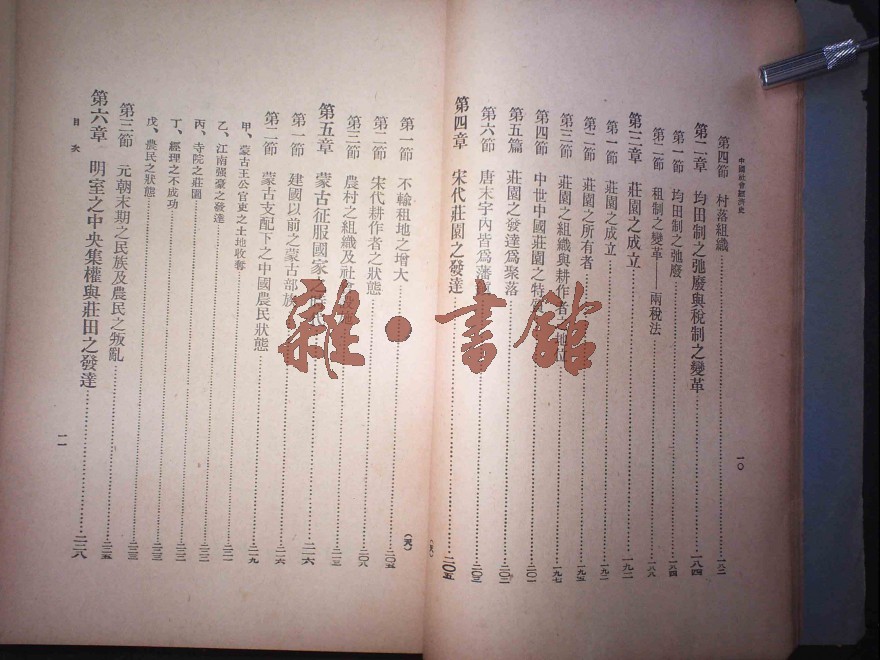 中國社會經濟史
第四節　村落組織……一八二
第二章　均田制之弛廢與稅制之變革……一八四
第一節　均田制之弛廢……一八四
第二節　租制之變革——兩稅法……一八八
第三章　莊園之成立……一九二
第一節　莊園之成立……一九二
第二節　莊園之所有者……一九五
第三節　莊園之組織與耕作者之地位……一九七
第四節　中世中國莊園之特質……二〇一
第五篇　莊園之發達爲聚落……二〇二
第六節　唐末宇內皆爲藩……二〇三
第四章　宋代莊園之發達……二〇五
一〇
第一節　不輸租地之增大……二〇五
第二節　宋代耕作者之狀態……二〇八
第三節　農村之組織及社會……二一三
第五章　蒙古征服國家之時代……二一六
第一節　建國以前之蒙古部族……二一六
第二節　蒙古支配下之中國農民狀態……二一九
甲、蒙古王公官吏之土地收奪
乙、江南强豪之發達
丙、寺院之莊園
丁、經理之不成功
戊、農民之狀態
第三節　元朝末期之民族及農民之叛亂
第六章　明室之中央集權與莊田之發達……二三八
目次
一一
雜·書館